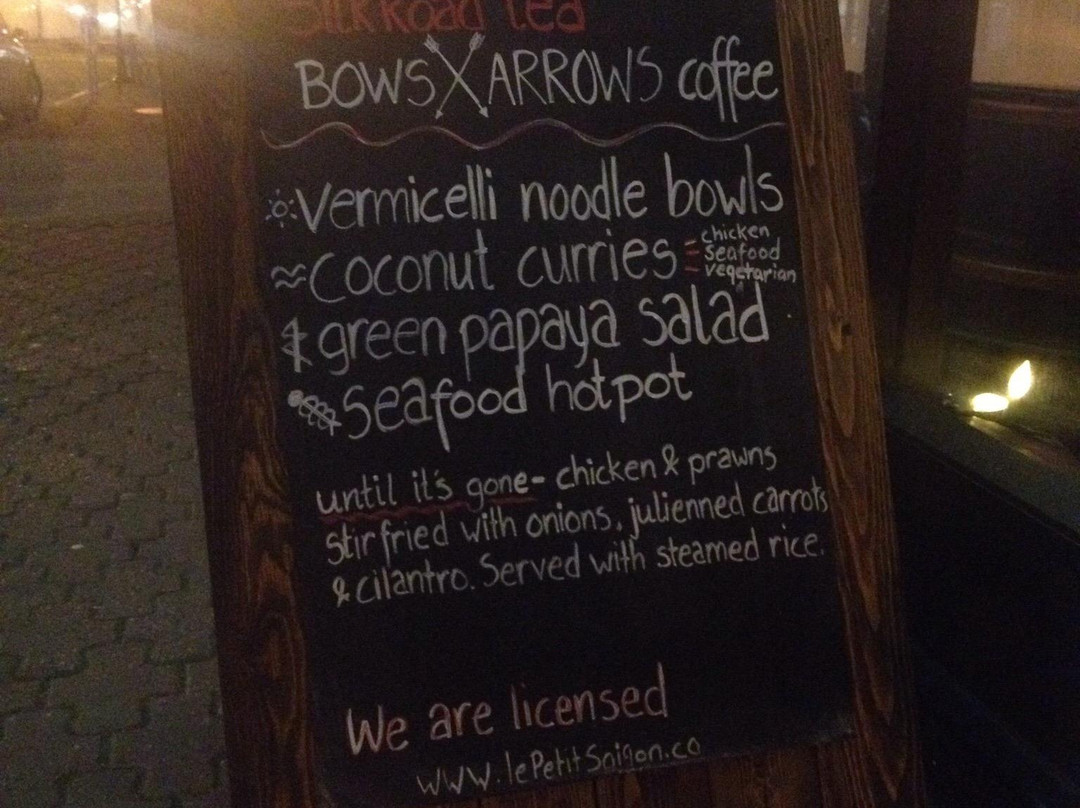 Silk Road tea
BOWS X ARROWS coffee
Vermicelli noodle bowls
coconut curries
chicken
seafood
vegetarian
& green papaya salad
seafood hotpot
until it's gone- chicken & prawns
stir fried with onions, julienned carrots
& cilantro. Served with steamed rice.
We are licensed
www.lePetitSaigon.ca